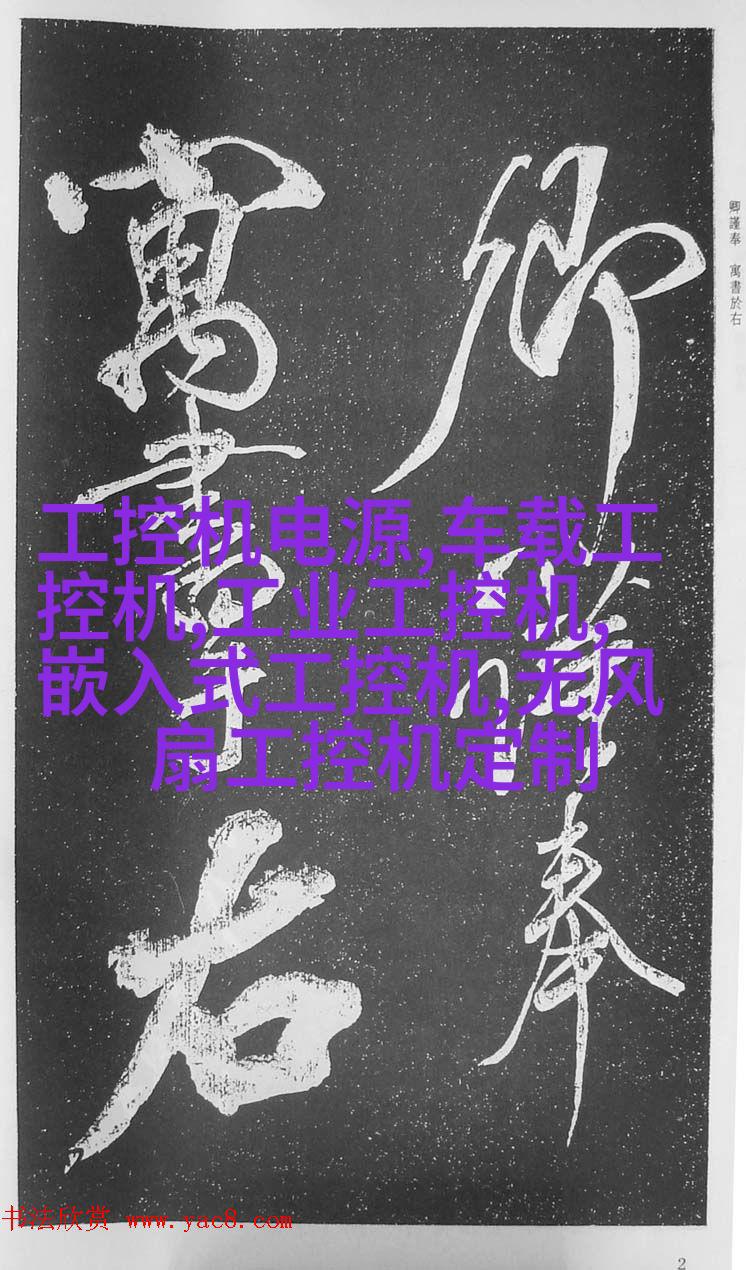 卿謹奉
寓書於右
卿謹奉 寓書於右
工控机电源,车载工
控机,工业工控机,
嵌入式工控机,无风
扇工控机定制
书法欣赏 www.yac8.com
2